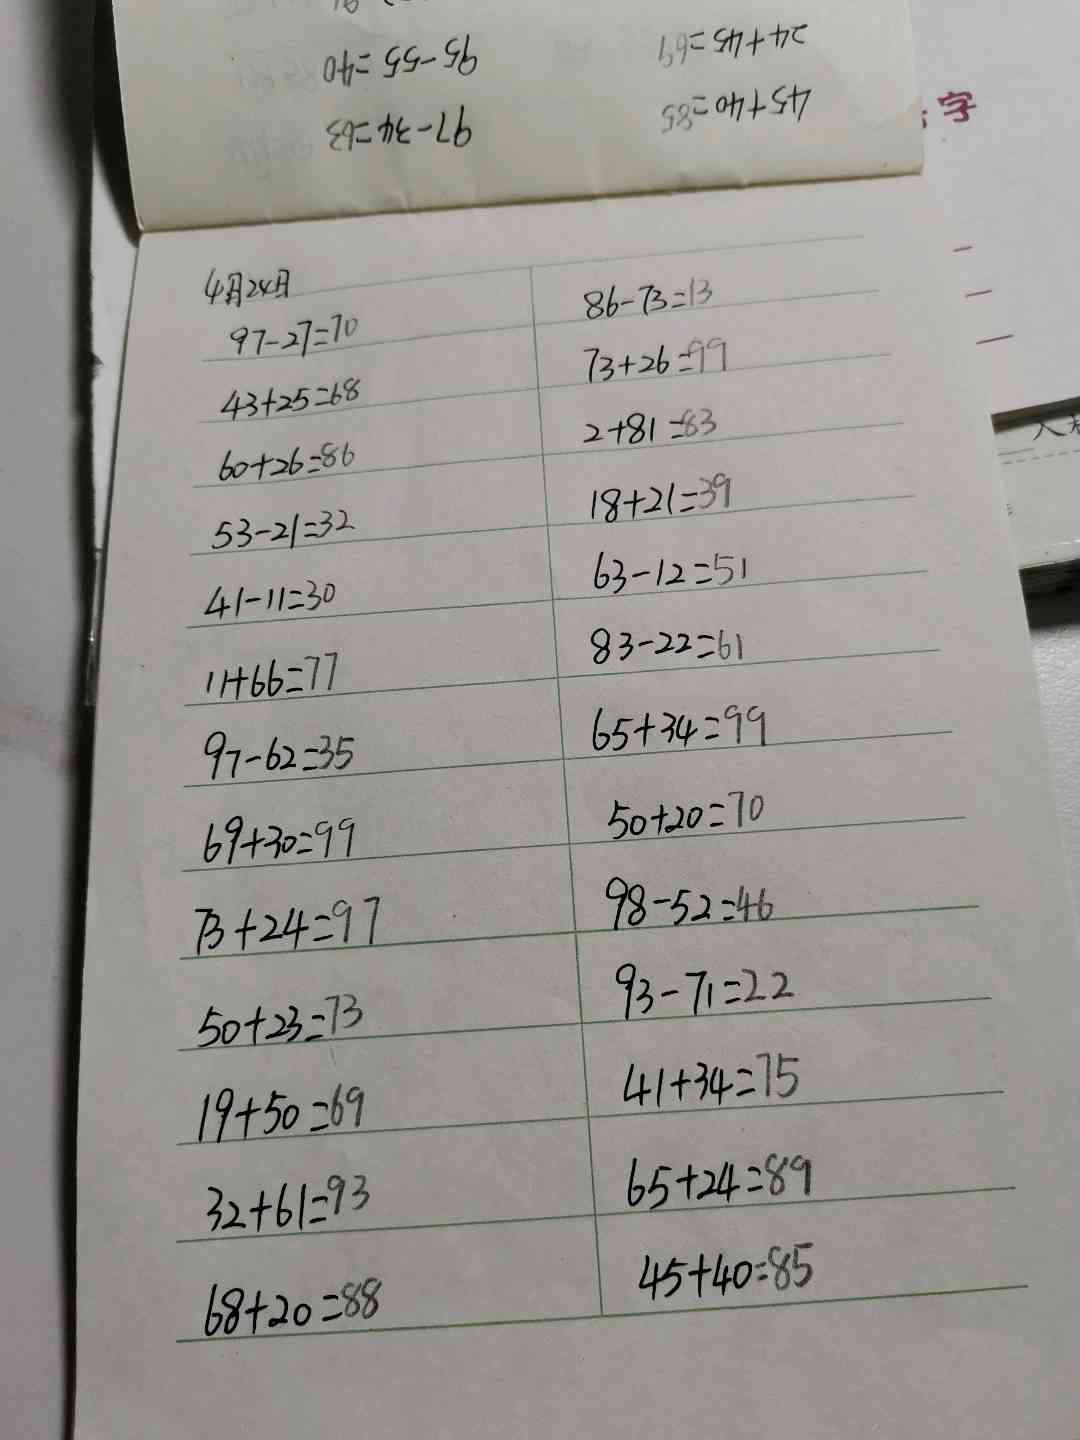 24+45=69
95-55=40
45+40=85
97-34=63
字
4月24日
97-27=70
43+25=68
60+26=86
53-21=32
41-11=30
11+66=77
97-62=35
69+30=99
73+24=97
50+23=73
19+50=69
32+61=93
68+20=88
86-73=13
73+26=99
2+81=83
18+21=39
63-12=51
83-22=61
65+34=99
50+20=70
98-52=46
93-71=22
41+34=75
65+24=89
45+40=85